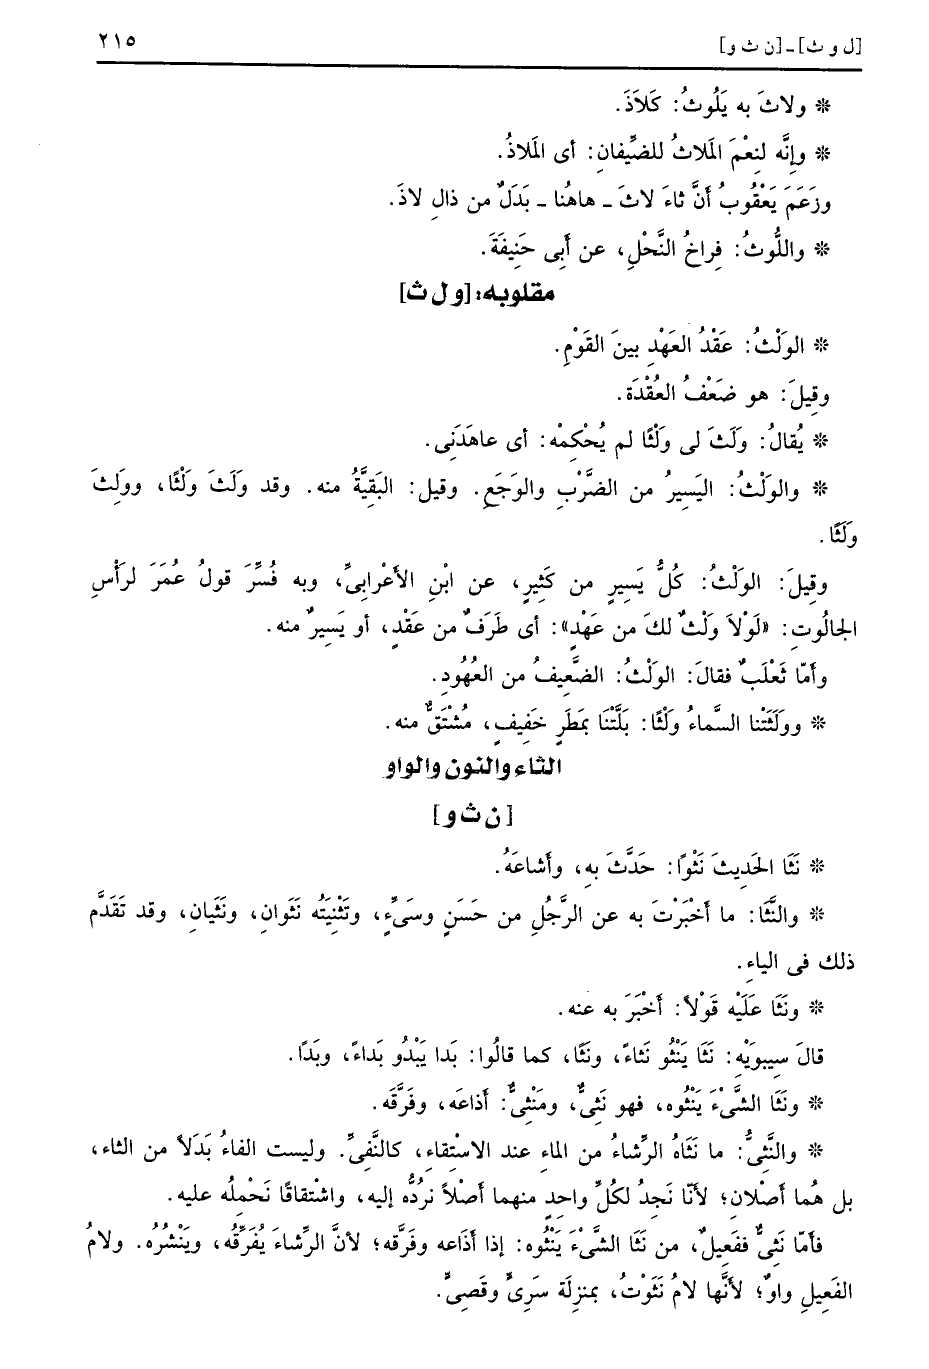 [ل و ث] ـ [ن ث و]
٢١٥
* ولاثَ به يَلُوثُ: كَلاَذَ.
* وإنَّه لنِعْمَ المَلاثُ للضِّيفانِ: أى المَلاذُ.
وزَعَمَ يَعْقُوبُ أنَّ ثاءَ لاثَ ـ هاهُنا ـ بَدَلٌ من ذالِ لاذَ.
* واللُّوثُ: فِراخُ النَّحْلِ، عن أَبِى حَنِيفَةَ.
مقلوبه: [و ل ث]
* الوَلْثُ: عَقْدُ العَهْدِ بينَ القَوْمِ.
وقِيلَ: هو ضَعْفُ العُقْدَة.
* يُقالُ: وَلَثَ لى وَلْثًا لم يُحْكِمْه: أى عاهَدَنِى.
* والوَلْثُ: اليَسِيرُ من الضَّرْبِ والوَجَعِ. وقيل: البَقِيَّةُ منه. وقد وَلَثَ وَلْثًا، ووَلِثَ
وَلَثًا.
وقِيلَ: الوَلْثُ: كُلُّ يَسِيرٍ من كَثِيرٍ، عن ابْنِ الأعْرابِىِّ، وبه فُسِّرَ قولُ عُمَرَ لرَأْسِ
الجالُوتِ: «لَوْلاَ وَلْثٌ لكَ من عَهْدٍ»: أى طَرَفٌ من عَقْدٍ، أو يَسِيرٌ منه.
وأمّا ثَعْلَبٌ فقالَ: الوَلْثُ: الضَّعِيفُ من العُهُودِ.
* ووَلَثَتْنا السَّماءُ وَلْثًا: بَلَّتْنَا بمَطَرٍ خَفِيفٍ، مُشْتَقٌّ منه.
الثاء والنون والواو
[ن ث و]
* نَثَا الحَدِيثَ نَثْوًا: حَدَّثَ بِه، وأشاعَهُ.
* والنَّثَا: ما أخْبَرْتَ به عن الرَّجُلِ من حَسَنٍ وسَىِّءٍ، وتَثْنِيَتُه نَثَوانِ، ونَثَيانِ، وقد تَقَدَّم
ذلك فى الياءِ.
* ونَثَا عَلَيْه قَوْلاً: أَخْبَرَ به عنه.
قالَ سِيبوَيْه: نَثَا يَنْثُو نَثاءً، ونَثًا، كما قالُوا: بَدا يَبْدُو بَداءً، وبَدًا.
* ونَثَا الشَّىْءَ يَنْثُوه، فهو نَثِىٌّ، ومَنْثِىٌّ: أذاعَه، وفَرَّقَه.
* والنَّثِىُّ: ما نَثَاهُ الرِّشاءُ من الماءِ عند الاسْتِقاءِ، كالنَّفِىِّ. وليست الفاءُ بَدَلاً من الثاء،
بل هُما أصْلانِ؛ لأنّا نَجِدُ لكُلِّ واحِدٍ منهما أصْلاً نَرُدُّه إليه، واشْتِقاقًا نَحْمِلُه عليه.
فأمّا نَثِىٌّ ففَعِيلٌ، من نَثَا الشَّىْءَ يَنْثُوه: إذا أذَاعَه وفَرَّقه؛ لأنَّ الرِّشاءَ يُفَرِّقُه، ويَنْشُرُه. ولامُ
الفَعِيلِ واوٌ؛ لأنَّها لامُ نَثَوْتُ، بمنزِلَة سَرِىٍّ وقَصِىٍّ.